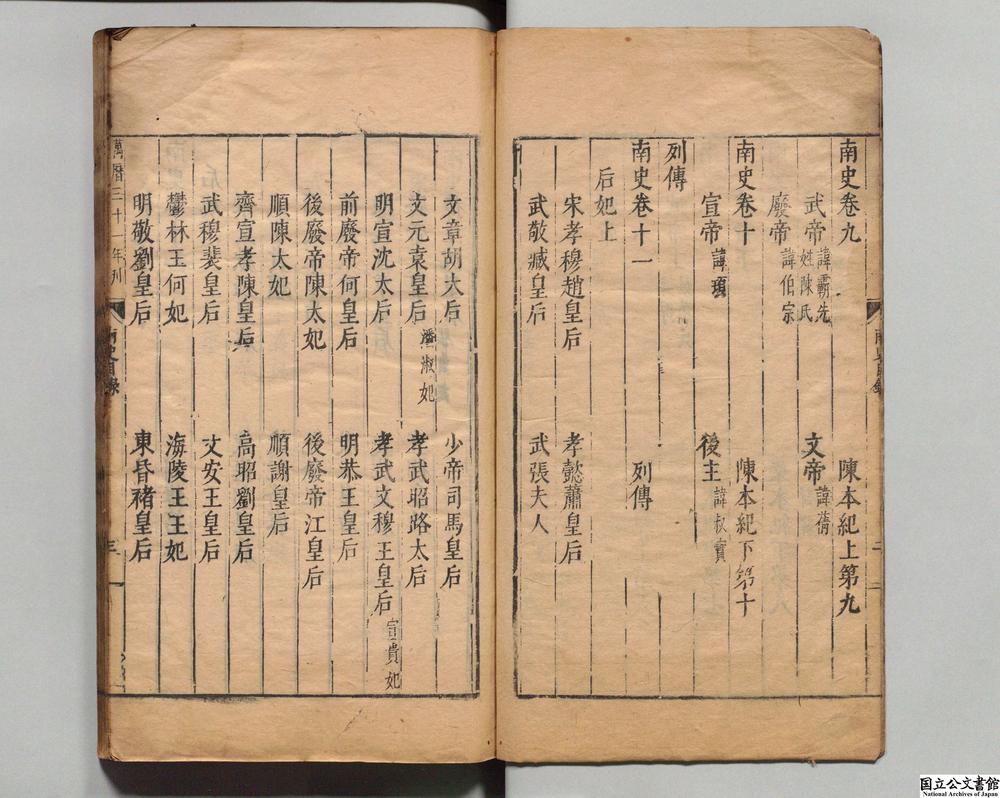 南史卷九 陳本紀上第九
武帝 諱霸先 姓陳氏 文帝 諱蒨
廢帝 諱伯宗
南史卷十 陳本紀下第十
宣帝 諱頊 後主 諱叔寶
列傳
南史卷十一 列傳
后妃上
宋孝穆趙皇后 孝懿蕭皇后
武敬臧皇后 武張夫人
文章胡太后 少帝司馬皇后
文元袁皇后 潘淑妃 孝武昭路太后
明宣沈太后 孝武文穆王皇后 宣貴妃
前廢帝何皇后 明恭王皇后
後廢帝陳太妃 後廢帝江皇后
順陳太妃 順謝皇后
齊宣孝陳皇后 高昭劉皇后
武穆裴皇后 文安王皇后
鬱林王何妃 海陵王王妃
明敬劉皇后 東昏褚皇后
萬曆三十一年刊
南史目錄
三
国立公文書館
National Archives of Japan